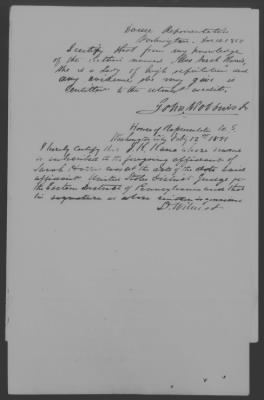 House Representatives
Washington
I certify that from my knowledge
of the within named Mrs Sarah
she is a lady of high reputation and
any evidence she may give is
entitled to the utmost credit.
John Robbins Jr
House of Representatives U. S.
Washington City July 12th
I hereby certify that J. K. Kane whose name
is subscribed to the foregoing affidavit of
Sarah was at the date of the said
affidavit United States District Judge for
the Eastern District of Pennsylvania and that
his signature as above is genuine
D. Wilmot